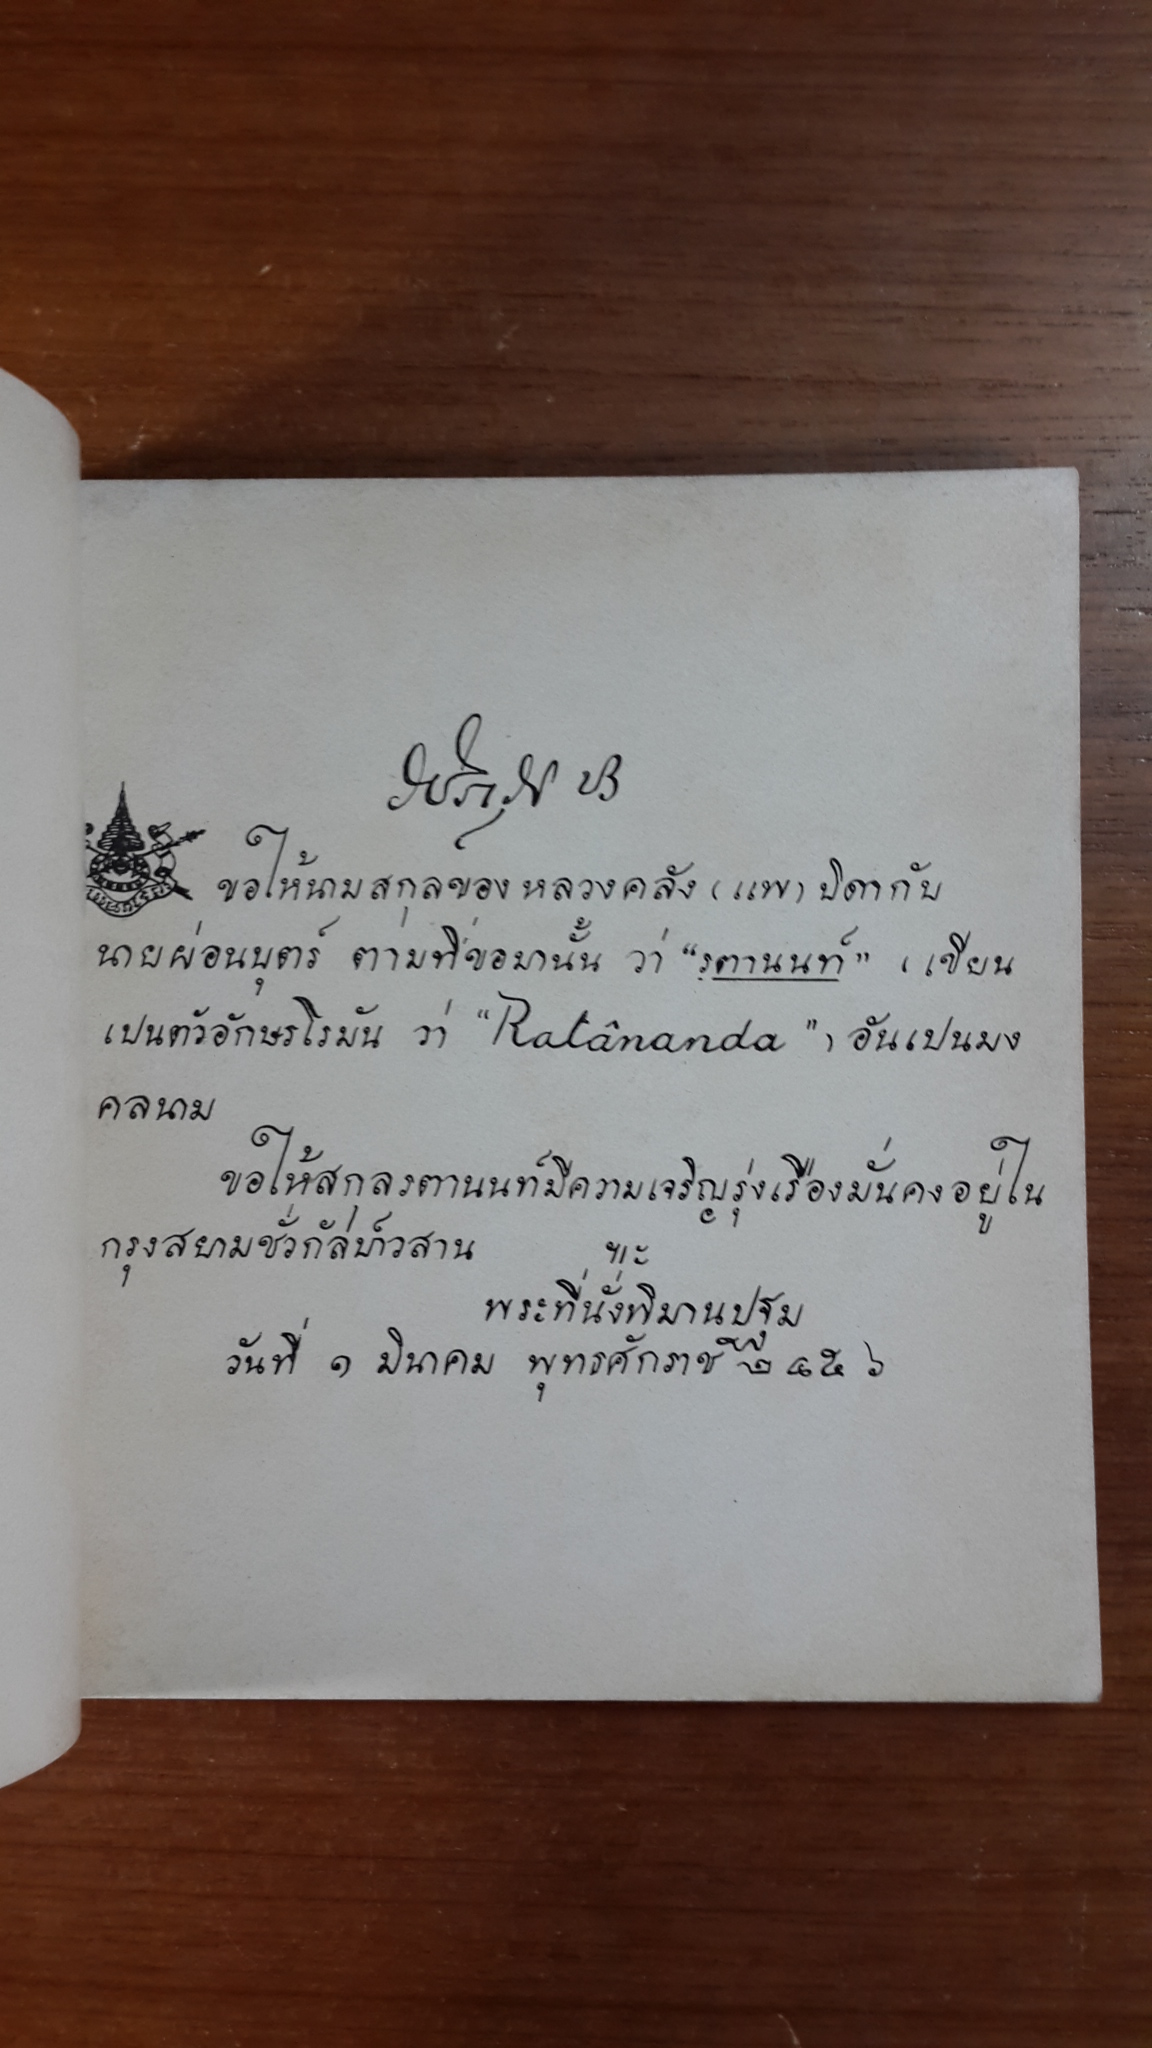 ขอให้นามสกุลของหลวงคลัง (แพ) บิดากับ
นายผ่อนบุตร์ ตามที่ขอมานั้น ว่า “รตานนท์” (เขียน
เปนตัวอักษรโรมัน ว่า “Ratânanda”) อันเปนมง
คลนาม
ขอให้สกุลรตานนท์มีความเจริญรุ่งเรืองมั่นคงอยู่ใน
กรุงสยามชั่วกัลปาวสาน
พระที่นั่งพิมานปฐม
วันที่ ๑ มีนาคม พุทธศักราช ๒๔๕๖